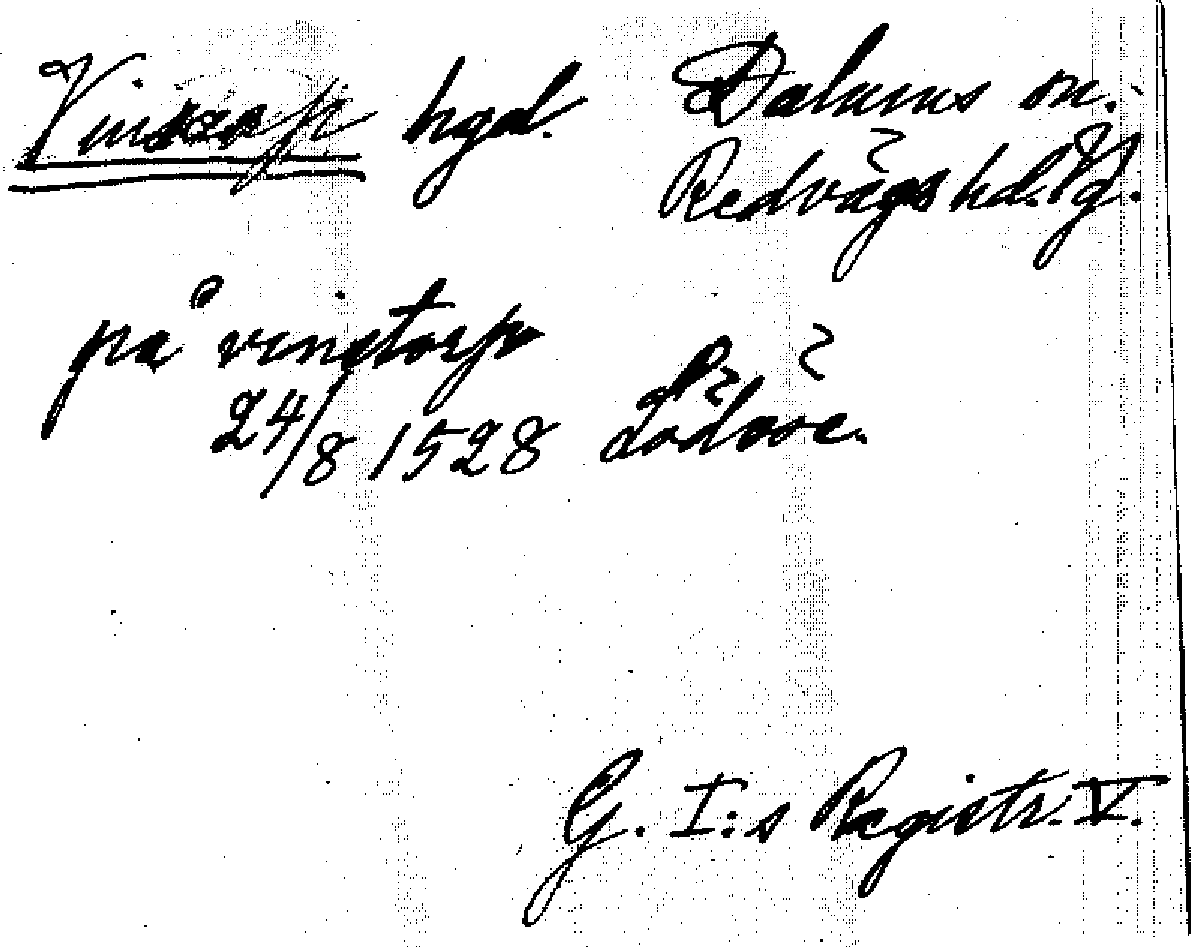 Vinsarp hgd. Dalums sn.
Redvägs hd. Vg.
på vinstorp
24/8 1528 Lödöse.
G. I:s Registr. V.